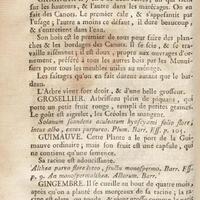 sur les hauteurs, & l'autre dans les marécages. On en
fait des Canots. Le premier cale, & s'appesantit par
l'usage ; l'autre a moins ce défaut, il dure beaucoup,
& s'entretient dans l'eau.
Son bois est le premier de tous pour faire des plan-
ches & les bordages des Canots. Il se fcie, & se tra-
vaille aisément ; il est doux, propre aux ouvrages d'or-
nement, préféré à tous les autres bois par les Menui-
siers pour tous les meubles unis au rabot.
Les sabages qu'on en fait durent autant que le bar-
deau.
L'Arbre vient fort droit, & d'une belle grosseur.
GROSELIER. Arbrisseau plein de piquants, qui
porte un petit fruit rouge, rempli de petites graines.
Le goût est aigrelet, les Créoles le mangent.
Solanum scandens aculeatum hyoscyami folio flore,
intus albo, extus purpureo. Plum. Barr. Ess. p. 104.
GUIMAUVE. Cette Plante a le port de la Gui-
mauve ordinaire, mais son fruit est une capsule, qui
ne contient qu'une semence.
Sa racine est adoucissante.
Althæa parvo flore luteo, fructu monospermo. Barr. Ess.
p. 9. An monospermalthea. Altorum. Barr.
GINGEMBRE. Il se cueille au bout de quatre mois
après qu'on a planté des morceaux de sa racine ; la ra-